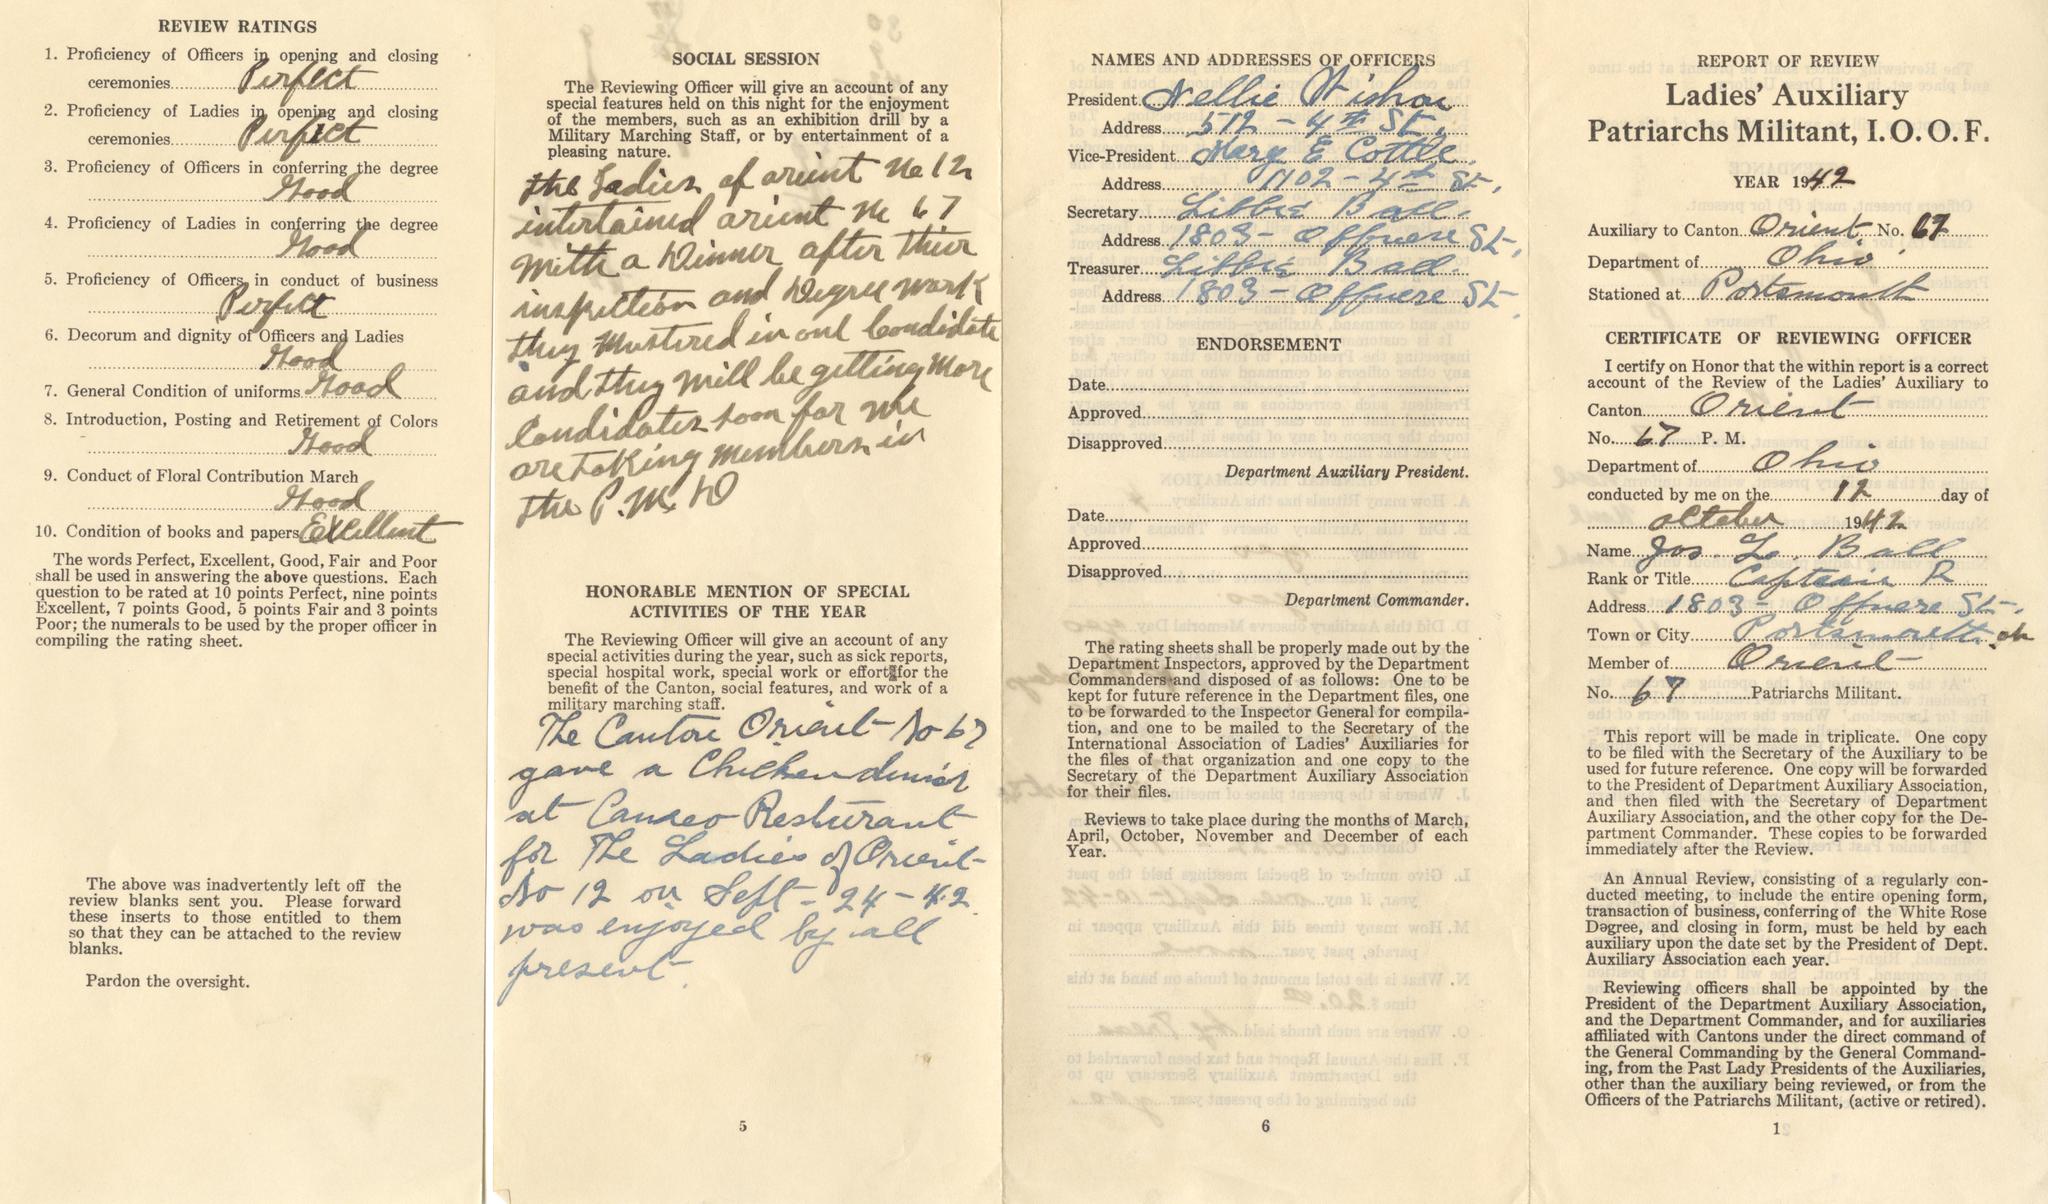 REVIEW RATINGS
1. Proficiency of Officers in opening and closing
ceremonies Perfect
2. Proficiency of Ladies in opening and closing
ceremonies Perfict
3. Proficiency of Officers in conferring the degree
Good
4. Proficiency of Ladies in conferring the degree
Good
5. Proficiency of Officers in conduct of business
Perfict
6. Decorum and dignity of Officers and Ladies
Good
7. General Condition of uniforms Good
8. Introduction, Posting and Retirement of Colors
Good
9. Conduct of Floral Contribution March
Good
10. Condition of books and papers Excellent
The words Perfect, Excellent, Good, Fair and Poor
shall be used in answering the above questions. Each
question to be rated at 10 points Perfect, nine points
Excellent, 7 points Good, 5 points Fair and 3 points
Poor; the numerals to be used by the proper officer in
compiling the rating sheet.
The above was inadvertently left off the
review blanks sent you. Please forward
these inserts to those entitled to them
so that they can be attached to the review
blanks.
Pardon the oversight.
SOCIAL SESSION
The Reviewing Officer will give an account of any
special features held on this night for the enjoyment
of the members, such as an exhibition drill by a
Military Marching Staff, or by entertainment of a
pleasing nature.
the Ladies of orient No 12
intertained orient No 67
with a Dinner after thier
inspection and Degree work
they mustered in one Candidate
and they will be getting more
Candidates soon for we
are taking members in
the P.M. D
HONORABLE MENTION OF SPECIAL
ACTIVITIES OF THE YEAR
The Reviewing Officer will give an account of any
special activities during the year, such as sick reports,
special hospital work, special work or effort for the
benefit of the Canton, social features, and work of a
military marching staff.
The Canton Orient No 67
gave a Chicken
at Resturant
for The Ladies of Orient
No 12 on Sept - 24 - 42
was enjoyed by all
present.
5
NAMES AND ADDRESSES OF OFFICERS
President Nellie
Address 512 - 4th St.
Vice-President Mary E Cottle.
Address 1102 - 4th St.
Secretary Libbie Ball.
Address 1803 - Offnere St.
Treasurer Libbie Ball.
Address 1803 - Offnere St.
ENDORSEMENT
Date
Approved
Disapproved
Department Auxiliary President.
Date
Approved
Disapproved
Department Commander.
The rating sheets shall be properly made out by the
Department Inspectors, approved by the Department
Commanders and disposed of as follows: One to be
kept for future reference in the Department files, one
to be forwarded to the Inspector General for compila-
tion, and one to be mailed to the Secretary of the
International Association of Ladies' Auxiliaries for
the files of that organization and one copy to the
Secretary of the Department Auxiliary Association
for their files.
Reviews to take place during the months of March,
April, October, November and December of each
Year.
6
REPORT OF REVIEW
Ladies' Auxiliary
Patriarchs Militant, I.O.O.F.
YEAR 1942
Auxiliary to Canton Orient No. 67
Department of Ohio
Stationed at Portsmouth
CERTIFICATE OF REVIEWING OFFICER
I certify on Honor that the within report is a correct
account of the Review of the Ladies' Auxiliary to
Canton Orient
No. 67 P. M.
Department of Ohio
conducted by me on the 12 day of
October 1942
Name Jos. L. Ball
Rank or Title Captain R
Address 1803 - Offnere St.
Town or City Portsmouth oh
Member of Orient
No. 67 Patriarchs Militant.
This report will be made in triplicate. One copy
to be filed with the Secretary of the Auxiliary to be
used for future reference. One copy will be forwarded
to the President of Department Auxiliary Association,
and then filed with the Secretary of Department
Auxiliary Association, and the other copy for the De-
partment Commander. These copies to be forwarded
immediately after the Review.
An Annual Review, consisting of a regularly con-
ducted meeting, to include the entire opening form,
transaction of business, conferring of the White Rose
Degree, and closing in form, must be held by each
auxiliary upon the date set by the President of Dept.
Auxiliary Association each year.
Reviewing officers shall be appointed by the
President of the Department Auxiliary Association,
and the Department Commander, and for auxiliaries
affiliated with Cantons under the direct command of
the General Commanding by the General Command-
ing, from the Past Lady Presidents of the Auxiliaries,
other than the auxiliary being reviewed, or from the
Officers of the Patriarchs Militant, (active or retired).
1